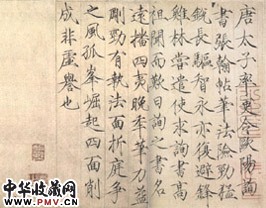 唐太子率更令歐陽詢
書張翰帖筆法險勁猛
銳長驅智永亦復避鋒
雞林嘗遣使求詢書高
祖聞而歎曰詢之書名
遠播四夷晚年筆力益
剛勁有執法面折庭爭
之風孤峯崛起四面削
成非虛譽也
中华收藏网